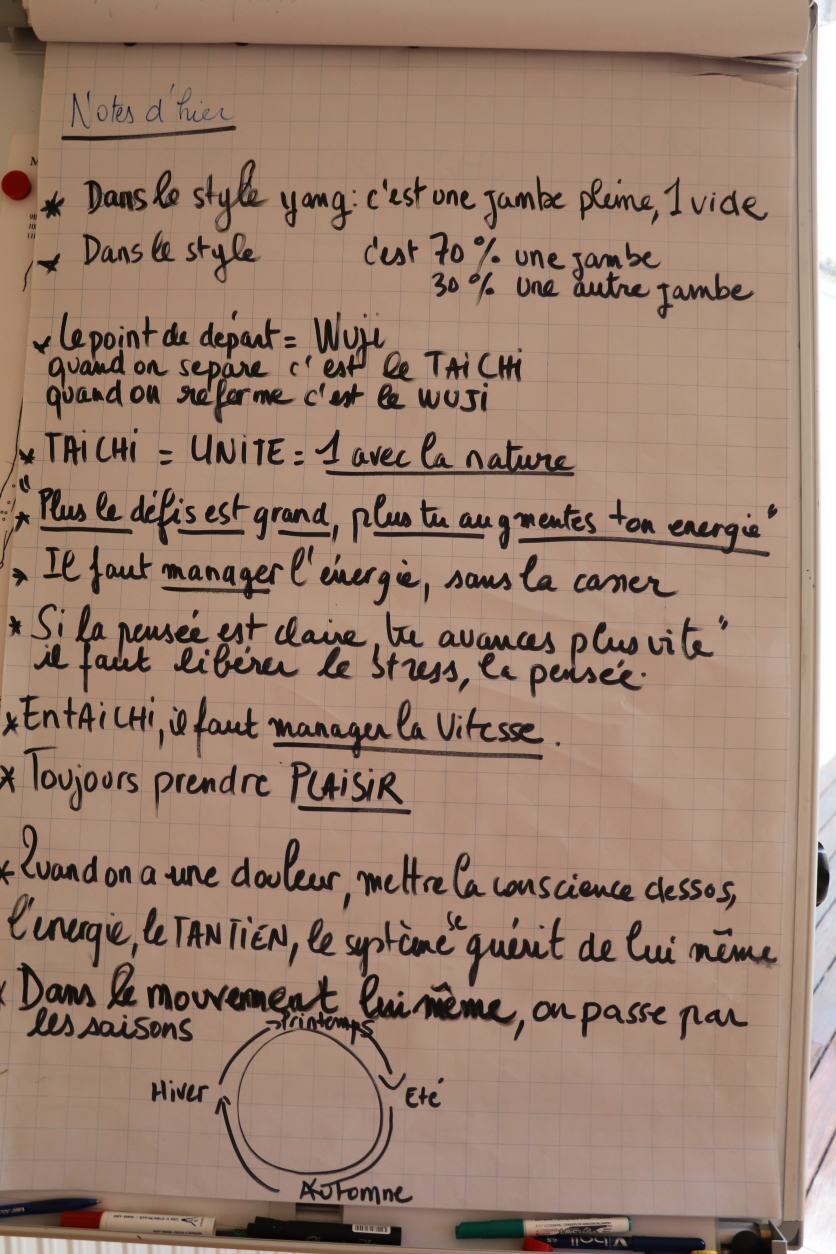 Notes d'hier
* Dans le style yang: c'est une jambe pleine, 1 vide
* Dans le style c'est 70% une jambe
30% une autre jambe
* le point de départ = Wuji
quand on separe c'est le TAiCHi
quand on referme c'est le WUJi
* TAiCHi = UNiTE = 1 avec la nature
* "Plus le défis est grand, plus tu augmentes ton energie"
* Il faut manager l'énergie, sans la casser
* Si la pensée est claire, tu avances plus vite"
il faut libérer le stress, la pensée.
* En tAiCHi, il faut manager la Vitesse.
* Toujours prendre PLAiSiR
* Quand on a une douleur, mettre la conscience dessos,
l'energie, le TANTiEN, le système se guérit de lui même
* Dans le mouvement lui même, on passe par
les saisons
Printemps
Hiver
Eté
Automne